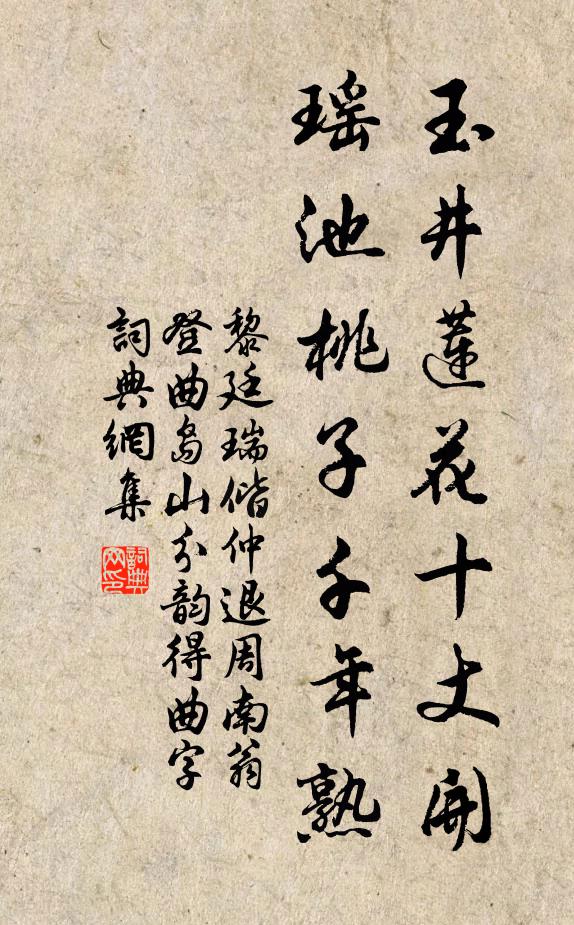 玉井蓮花十丈開
瑶池桃子千年熟
黎廷瑞偕仲退周南翁
登曲岛山分韵得曲字
詞典網集
詞典网印